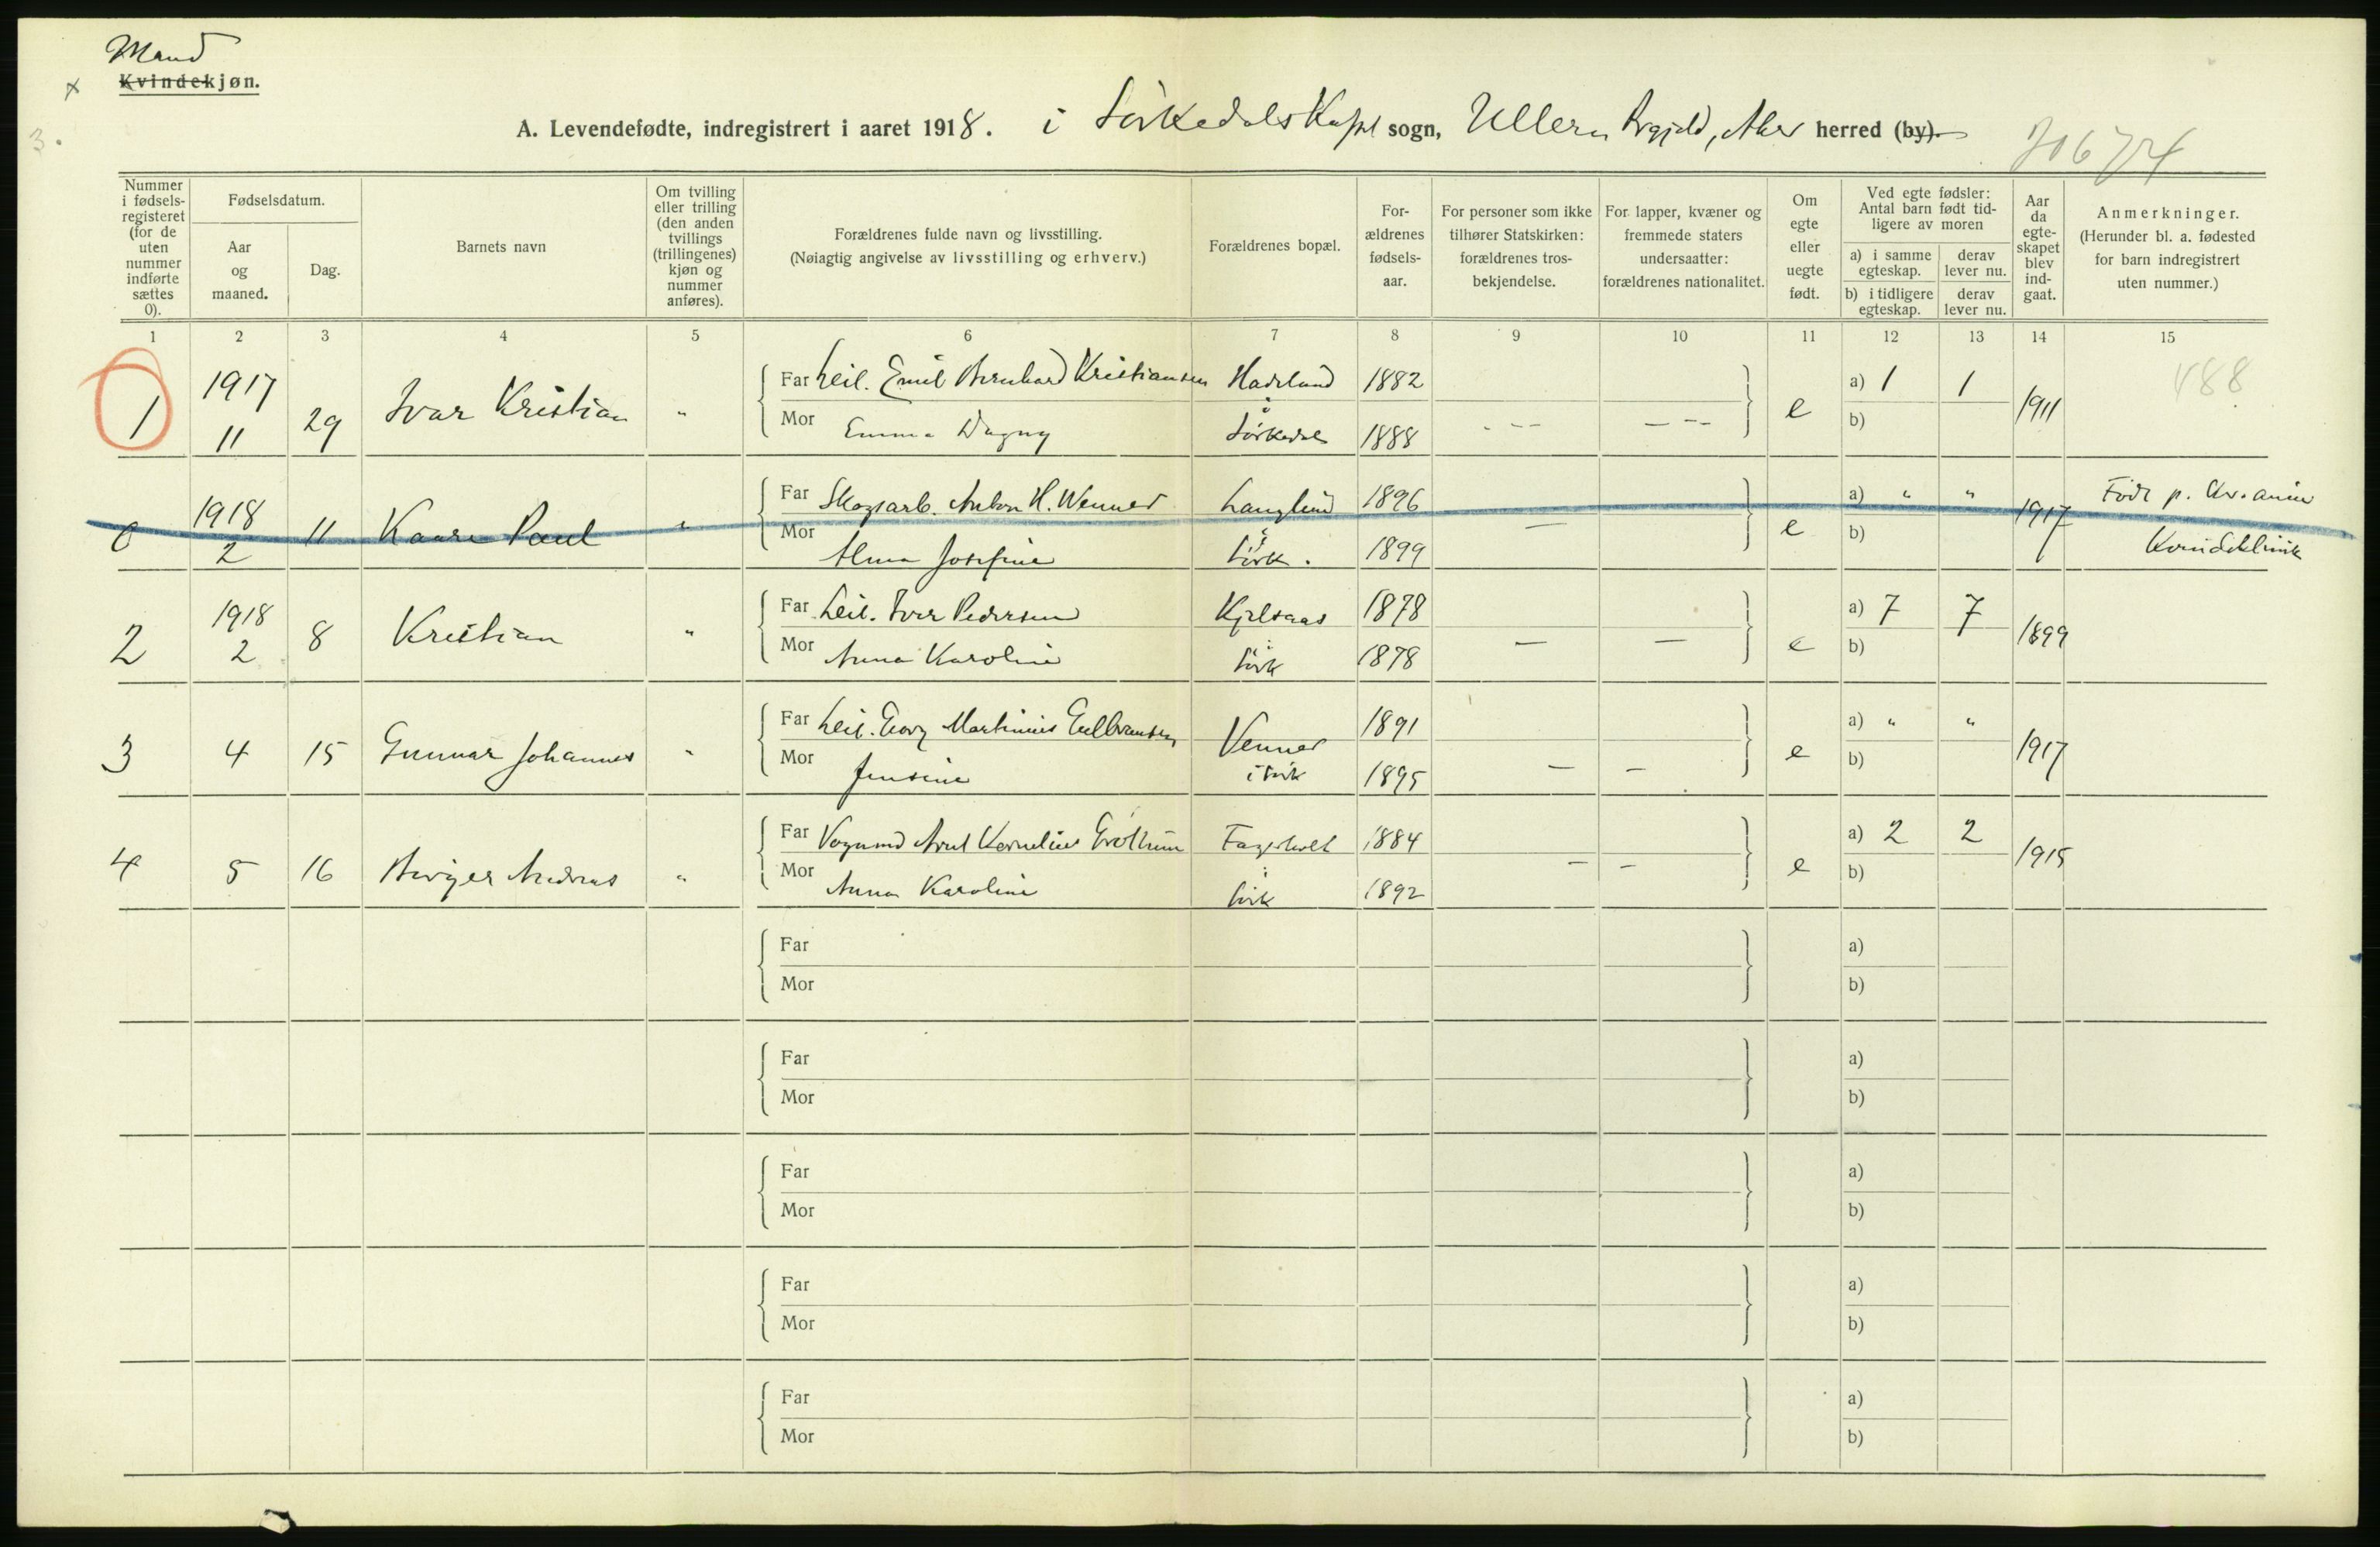 Mand
Kvindekjøn.
x
3.
A. Levendefødte, indregistrert i aaret 1918. i Sörkedals Kapel sogn, Ullern Prgjeld, Aker herred (by).
Nummer i fødselsregisteret (for de uten nummer indførte sættes 0).
Fødselsdatum.
Aar og maaned.
Dag.
Barnets navn
Om tvilling eller trilling (den anden tvillings (trillingenes) kjøn og nummer anføres).
Forældrenes fulde navn og livsstilling.
(Nøiagtig angivelse av livsstilling og erhverv.)
Forældrenes bopæl.
For-ældrenes fødsels-aar.
For personer som ikke tilhører Statskirken: forældrenes tros-bekjendelse.
For lapper, kvæner og fremmede staters undersaatter: forældrenes nationalitet.
Om egte eller uegte født.
Ved egte fødsler: Antal barn født tid-ligere av moren
a) i samme egteskap.
derav lever nu.
b) i tidligere egteskap.
derav lever nu.
Aar da egte-skapet blev ind-gaat.
Anmerkninger.
(Herunder bl. a. fødested for barn indregistrert uten nummer.)
1 2 3 4 5 6 7 8 9 10 11 12 13 14 15
1 1917 11 29 Ivar Kristian " Far Leil. Emil Bernhard Kristiansen Hadeland 1882 e a) 1 1 1911 488
Mor Emma Dagny i Sörkedal 1888 b)
0 1918 2 11 Kaare Paul " Far Skogsarb. Anton H. Wenner Langlind 1896 e a) " " 1917 Födt p. Kr.ania
Mor Alma Josefine i Sörk. 1899 b) Kvindeklinik
2 1918 2 8 Kristian " Far Leil. Iver Pedersen Kjelsaas 1878 e a) 7 7 1899
Mor Anna Karoline i Sörk 1878 b)
3 4 15 Gunnar Johannes " Far Leil. Georg Martinius Gulbransen Venner 1891 e a) " " 1917
Mor Jensine i Sörk 1895 b)
4 5 16 Birger Andreas " Far Vognmd Arnt Kornelius Gröttum Fagerholt 1884 e a) 2 2 1915
Mor Anna Karoline i Sörk 1892 b)
Far a)
Mor b)
Far a)
Mor b)
Far a)
Mor b)
Far a)
Mor b)
Far a)
Mor b)